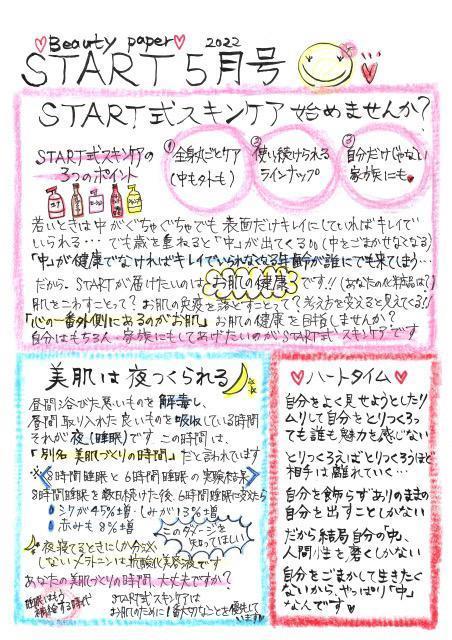 ♡Beauty paper♡ 2022
START 5月号
START式スキンケア 始めませんか?
START式スキンケアの
3つのポイント
① 全身丸ごとケア
(中も外も)
② 使い続けられる
ラインナップ
③ 自分だけじゃない
家族にも♥
若いときは中がぐちゃぐちゃでも表面だけキレイにしていればキレイで
いられる・・・でも歳を重ねると「中」が出てくる!!(中をごまかせなくなる)
「中」が健康でなければキレイでいられなくなる年齢が誰にでも来てしまう…
だから、STARTが届けたいのは お肌の健康 です!!(あなたの化粧品は?)
肌をこわすことって?お肌の免疫を落とすことって?考え方を変えると見えてくる!!
「心の一番外側にあるのがお肌」お肌の健康を目指しませんか?
自分はもちろん、家族にもしてあげたいのがSTART式スキンケアです
美肌は夜つくられる
昼間浴びた悪いものを解毒し、
昼間取り入れた良いものを吸収している時間
それが夜(睡眠)です この時間は、
「別名 美肌づくりの時間」だと言われています
※《8時間睡眠と6時間睡眠の実験結果》
8時間睡眠を数日続けた後 6時間睡眠に変えたら
○シワが45%増・しみが13%増
○赤みも8%増
このダメージを
知ってほしい
夜寝てるときにしか分泌
しないメラトニンは抗酸化美容液です
あなたの美肌づくりの時間、大丈夫ですか?
睡眠はもう
積極する時代
START式スキンケアは
お肌のために1番大切なことを優先して
います♡
♥ハートタイム♥
自分をよく見せようとしたり
ムリして自分をとりつくろっ
ても誰も魅力を感じない
とりつくろえばとりつくろうほど
相手は離れていく…
自分を飾らずありのままの
自分を出すことしかない
だから結局自分の「中」、
人間性を磨くしかない
自分をごまかして生きたく
ないから、やっぱり「中」
なんです♥